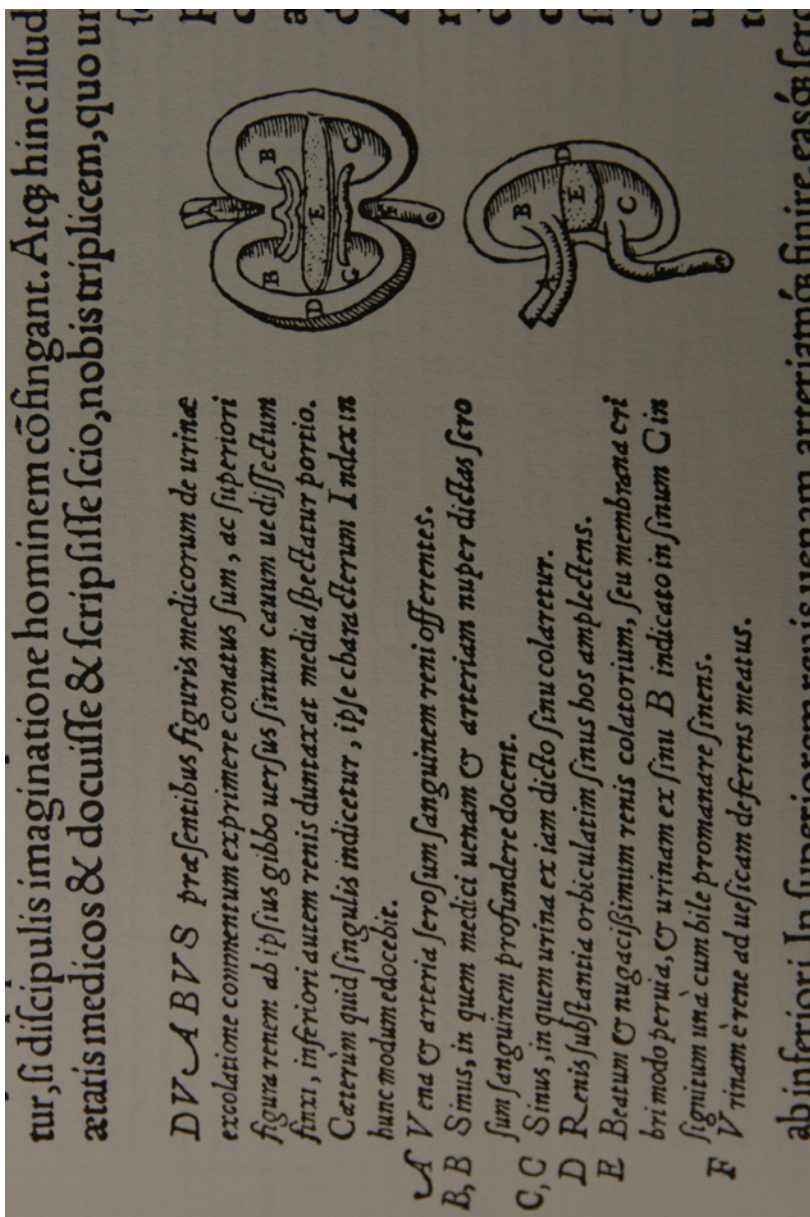 tur, ſi diſcipulis imaginatione hominem cõfingant. Atqꝫ hinc illud
ætatis medicos & docuiſſe & ſcripſiſſe ſcio, nobis triplicem, quo ur
DVABVS præſentibus figuris medicorum de urinæ
excolatione commentum exprimere conatus ſum, ac ſuperiori
figura renem ab ipſius gibbo uerſus ſinum cauum ue diſſectum
finxi, inferiori autem renis duntaxat media ſpectatur portio.
Cæterùm quid ſingulis indicetur, ipſe characterum Index in
hunc modum edocebit.
A Vena & arteria ſeroſum ſanguinem reni offerentes.
B, B Sinus, in quem medici uenam & arteriam nuper dictas ſero
ſum ſanguinem profundere docent.
C, C Sinus, in quem urina ex iam dicto ſinu colaretur.
D Renis ſubſtantia orbiculatim ſinus hos amplectens.
E Beatum & nugacißimum renis colatorium, ſeu membrana cri
bri modo peruia, & urinam ex ſinu B indicato in ſinum C in
ſignitum unà cum bile promanare ſinens.
F Vrinam è rene ad ueſicam deferens meatus.
B
C
E
B
C
D
F
D
B
E
C
A
ab inferiori. In ſuperiorem renis uenam, arteriamqꝫ finire, easqꝫ ſero